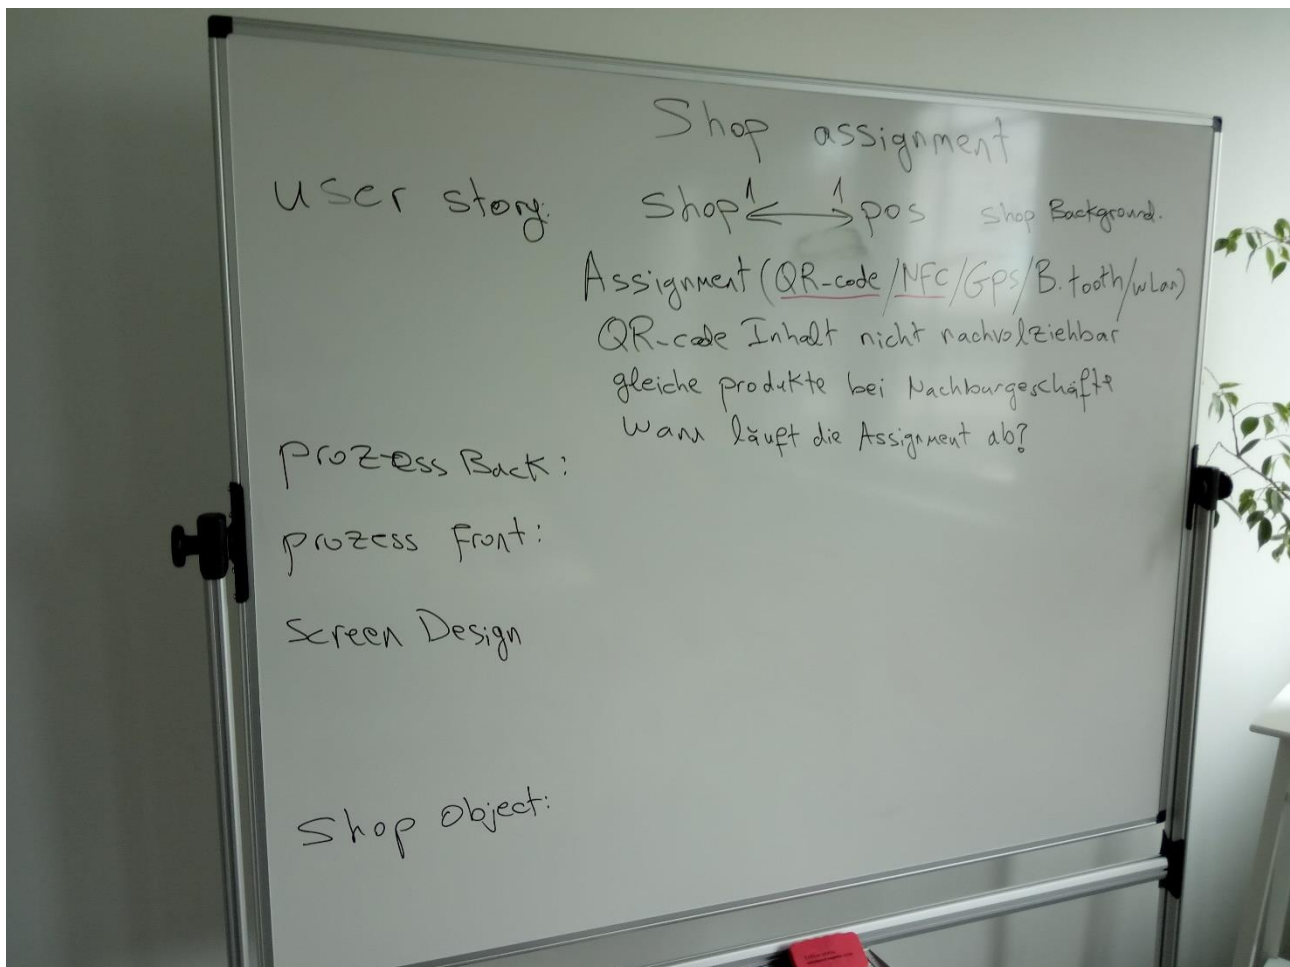 Shop assignment
user story: shop 1 ↔ 1 pos shop Background.
Assignment (QR-code/NFC/Gps/B.tooth/wlan)
QR-code Inhalt nicht nachvolziehbar
gleiche produkte bei Nachburgeschäfte
wann läuft die Assignment ab?
prozess Back:
prozess Front:
screen Design
shop object: